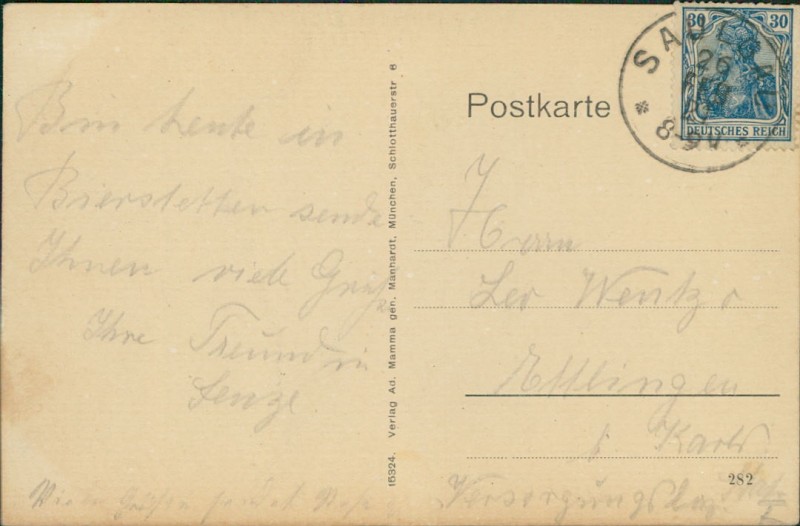 Bin heute in
Bierstetten sende
Ihnen viele Grüße
Ihre Freundin
Senze
15324. Verlag Ad. Mamma gen. Manhardt, München, Schlotthauerstr 6
Postkarte
30 30
DEUTSCHES REICH
SAUL
26
8-9V
Herrn
Leo Wentz
Ettlingen
b. Karls
282
Versorgungslaz.